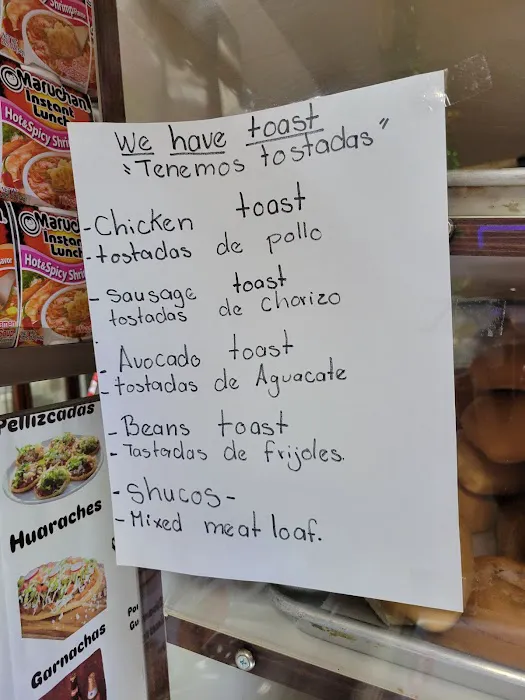 Shrimp
Maruchan
Instant
Lunch
Hot & Spicy Shri
Maruc
Instan
Lunch
Hot & Spicy Shri
We have toast
"Tenemos tostadas"
- Chicken toast
- tostadas de pollo
- Sausage toast
tostadas de Chorizo
- Avocado toast
- tostadas de Aguacate
- Beans toast
- Tastadas de frijoles.
- Shucos -
- Mixed meat loaf.
Pellizcadas
Huaraches
Garnachas